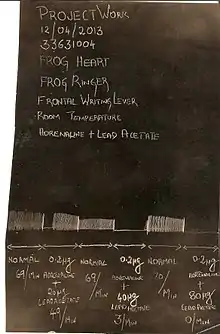 PROJECT WORK
12/04/2013
33631004
FROG HEART
FROG RINGER
FRONTAL WRITING LEVER
ROOM TEMPERATURE
ADRENALINE + LEAD ACETATE
NORMAL 0.2µg NORMAL 0.2µg NORMAL 0.2µg
69/MIN ADRENALINE 69/MIN ADRENALINE 70/MIN ADRENALINE
+ + +
20µg 40µg 80µg
LEAD ACETATE LEAD ACETATE LEAD ACETATE
49/MIN 31/MIN 0/MIN